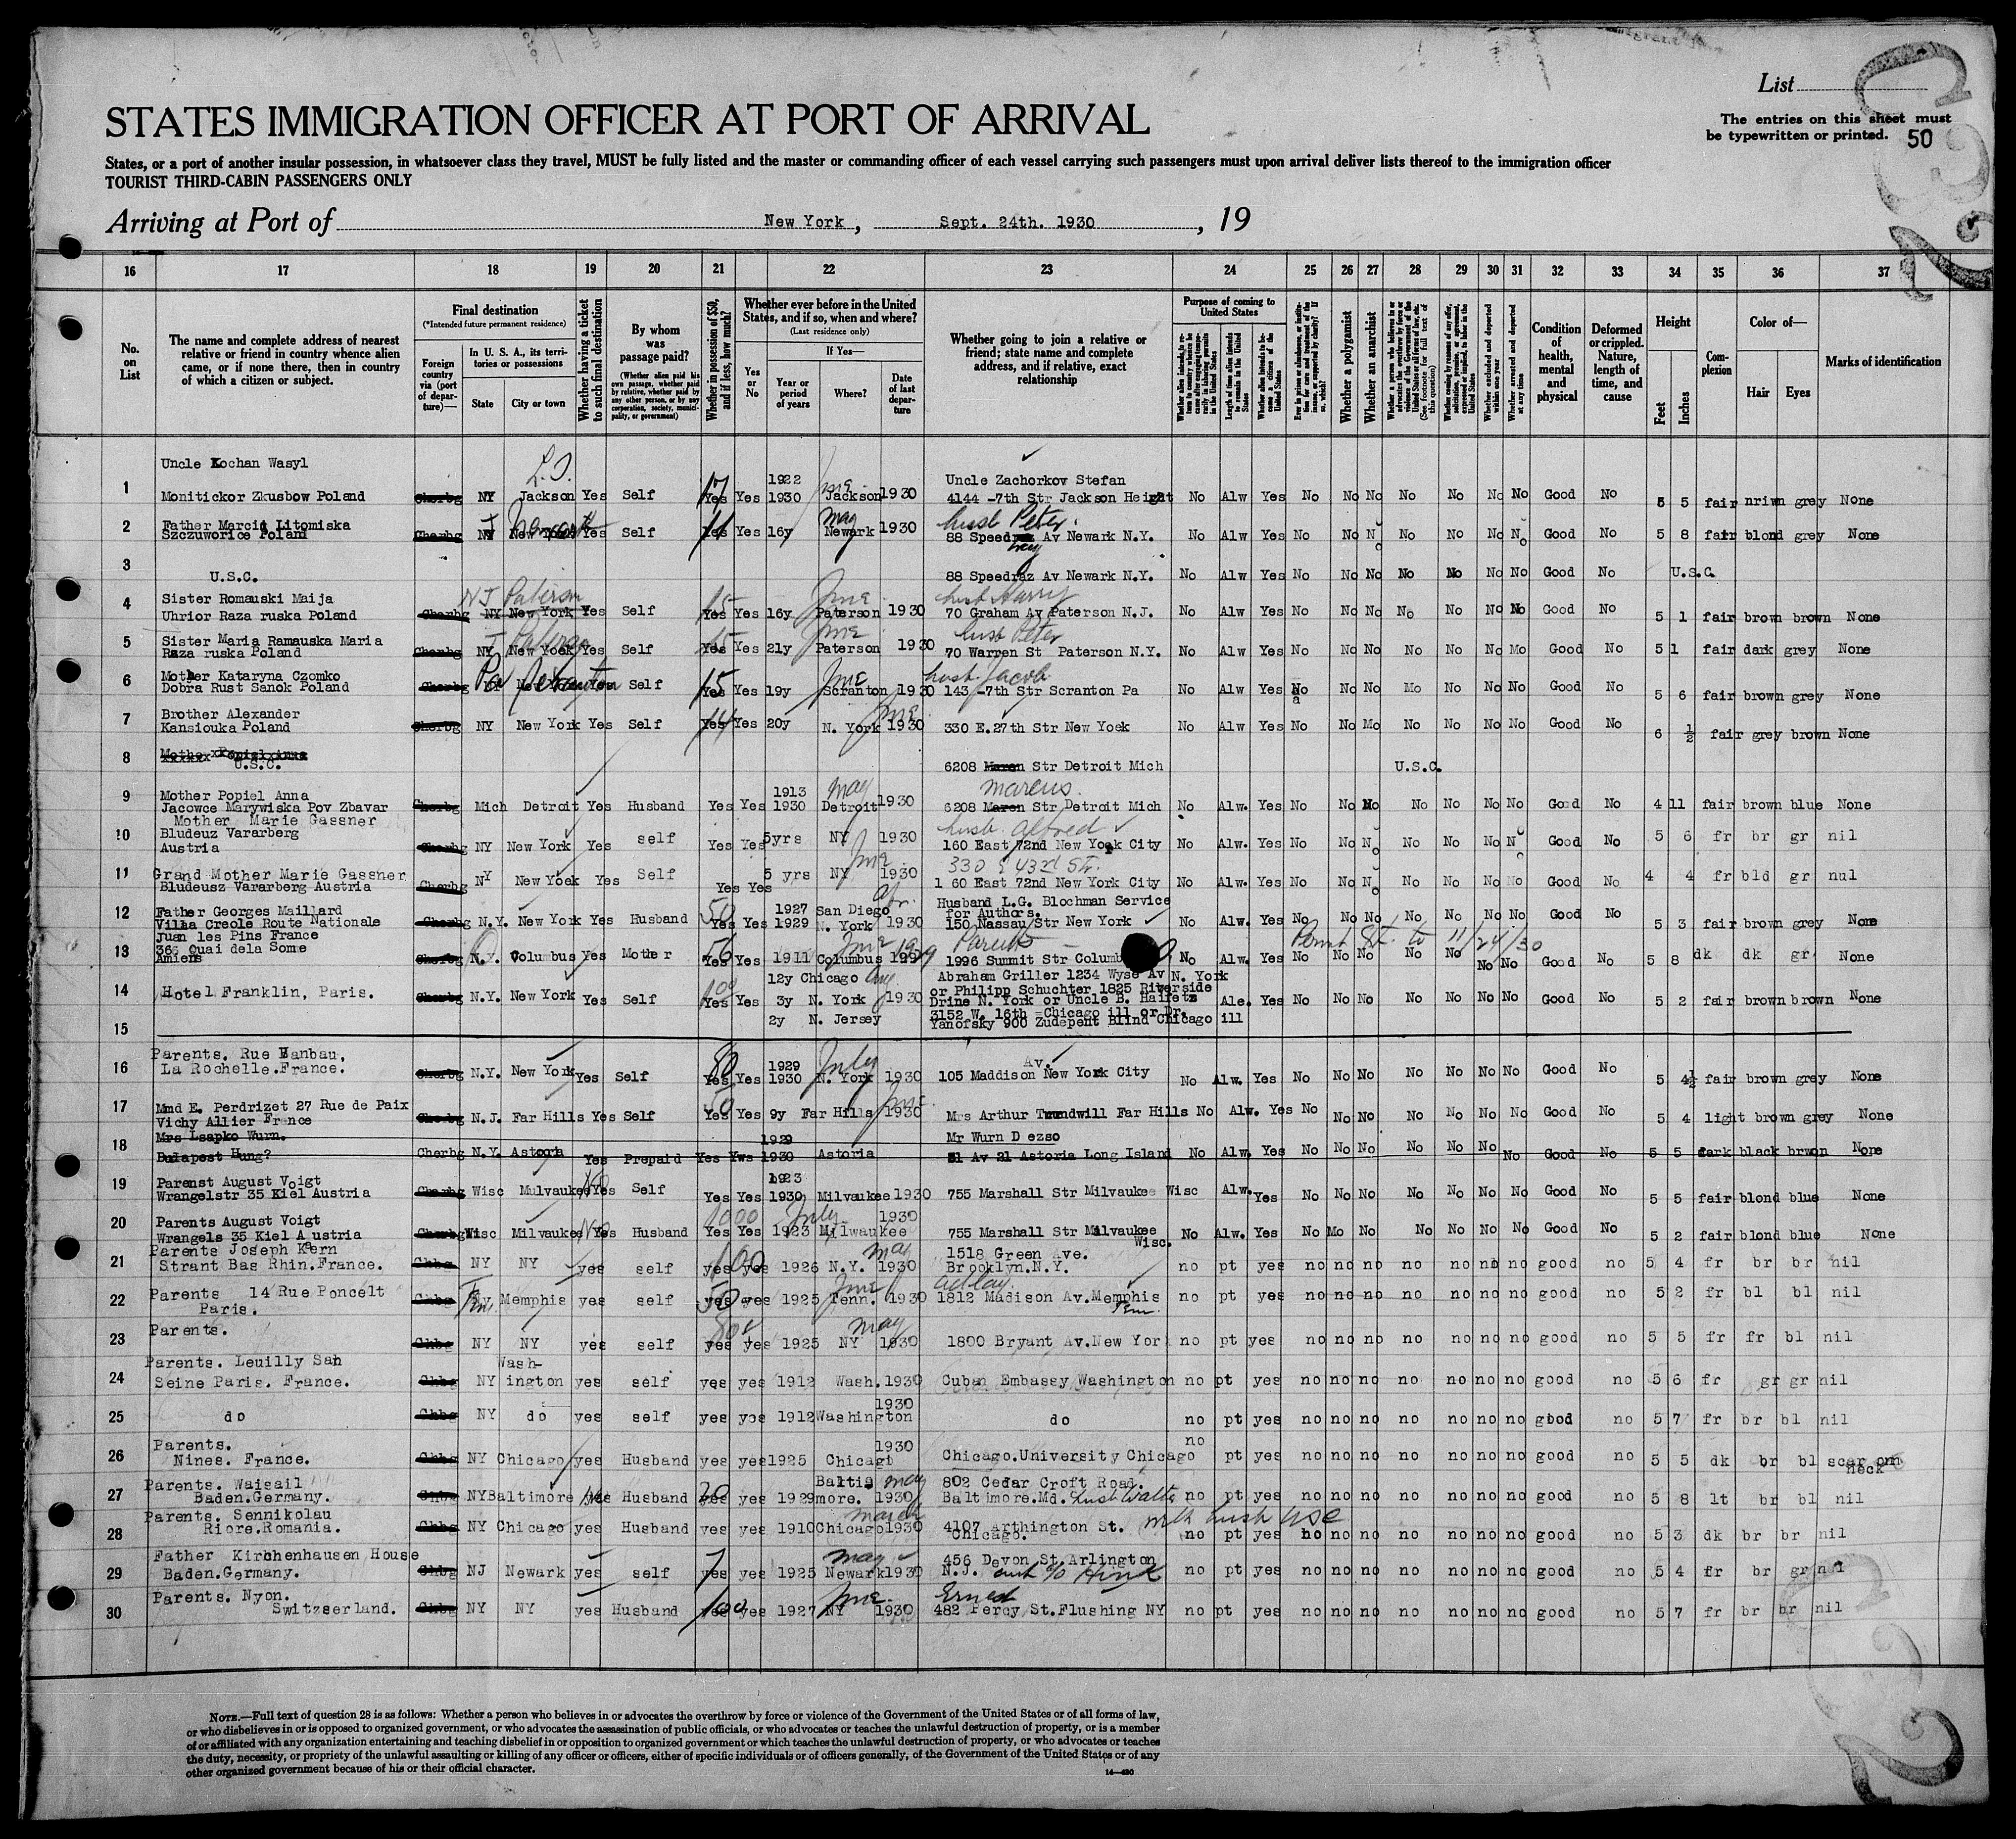 List
The entries on this sheet must
be typewritten or printed.
50
STATES IMMIGRATION OFFICER AT PORT OF ARRIVAL
States, or a port of another insular possession, in whatsoever class they travel, MUST be fully listed and the master or commanding officer of each vessel carrying such passengers must upon arrival deliver lists thereof to the immigration officer
TOURIST THIRD-CABIN PASSENGERS ONLY
Arriving at Port of New York, Sept. 24th. 1930, 19
16 17 18 19 20 21 22 23 24 25 26 27 28 29 30 31 32 33 34 35 36 37
No. on List
The name and complete address of nearest relative or friend in country whence alien came, or if none there, then in country of which a citizen or subject.
Final destination
(*Intended future permanent residence)
Foreign country via (port of departure)—
In U. S. A., its territories or possessions
State
City or town
Whether having a ticket to such final destination
By whom was passage paid?
(Whether alien paid his own passage, whether paid by relative, whether paid by any other person, or by any corporation, society, municipality, or government)
Whether in possession of $50, and if less, how much?
Whether ever before in the United States, and if so, when and where?
(Last residence only)
Yes or No
If Yes—
Year or period of years
Where?
Date of last departure
Whether going to join a relative or friend; state name and complete address, and if relative, exact relationship
Purpose of coming to United States
Length of time alien intends to remain in the United States
Whether alien intends to become a citizen of the United States
Whether a polygamist
Whether an anarchist
Whether excluded and deported within one year
Whether arrested and deported at any time
Condition of health, mental and physical
Deformed or crippled. Nature, length of time, and cause
Height
Feet
Inches
Complexion
Color of—
Hair
Eyes
Marks of identification
Uncle Kochan Wasyl
L.I.
1922
Uncle Zachorkov Stefan
1 Monitickor Zkusbow Poland Cherbg NY Jackson Yes Self Yes Yes 1930 Jackson 1930 4144 -7th Str Jackson Height No Alw Yes No No No No No No No Good No 5 5 fair nriwn grey None
2 Father Marcin Litomiska May husb Peter
Szczuworice Poland Cherbg NY New York Yes Self Yes Yes 16y Newark 1930 88 Speed Av Newark N.Y. No Alw Yes No No No No No No No Good No 5 8 fair blond grey None
3 U.S.C. 88 Speedraz Av Newark N.Y. No Alw Yes No No No No No No No Good No U.S.C.
4 Sister Romauski Maija NJ Paterson June husb Harry
Uhrior Raza ruska Poland Cherbg NY New York Yes Self Yes Yes 16y Paterson 1930 70 Graham Av Paterson N.J. No Alw Yes No No No No No No No Good No 5 1 fair brown brown None
5 Sister Maria Ramauska Maria June husb Peter
Raza ruska Poland Cherbg NY New Yoek Yes Self Yes Yes 21y Paterson 1930 70 Warren St Paterson N.Y. No Alw Yes No No No No No No Mo Good No 5 1 fair dark grey None
6 Mother Kataryna Czomko Pa Scranton 15 June husb. Jacob
Dobra Rust Sanok Poland Cherbg Yes Self Yes Yes 19y Scranton 1930 143 -7th Str Scranton Pa No Alw Yes Na No No Mo No No No Good No 5 6 fair brown grey None
7 Brother Alexander June
Kansiouka Poland Cherbg NY New York Yes Self Yes Yes 20y N. York 1930 330 E.27th Str New Yoek No Alw Yes No No Mo No No No No Good No 6 ½ fair grey brown None
8 U.S.C. 6208 Maren Str Detroit Mich U.S.C.
9 Mother Popiel Anna 1913 May marcus.
Jacowce Marywiska Pov Zbavar Cherbg Mich Detroit Yes Husband Yes Yes 1930 Detroit 1930 6208 Maren Str Detroit Mich No Alw. Yes No No No No No No No Good No 4 11 fair brown blue None
Mother Marie Gassner husb. Alfred
10 Bludeuz Vararberg
Austria Cherbg NY New York Yes self Yes Yes 5yrs NY 1930 160 East 72nd New York City No Alw. Yes No No No No No No No Good No 5 6 fr br gr nil
11 Grand Mother Marie Gassner June 330 E 43rd St.
Bludeusz Vararberg Austria Cherbg NY New Yoek Yes Self Yes Yes 5 yrs NY 1930 1 60 East 72nd New York City No Alw. Yes No No No No No No No Good No 4 4 fr bld gr nul
12 Father Georges Maillard 50 1927 San Diego Husband L.G. Blochman Service
for Authors.
Villa Creole Route Nationale Cherbg N.Y. New York Yes Husband Yes Yes 1929 N. York 1930 150 Nassau Str New York No Alw. Yes No No No No No No No Good No 5 3 fair brown grey None
Juan les Pins France
13 36 Quai dela Some June Parents
Amiens Cherbg N.Y. Columbus Yes Mother Yes Yes 1911 Columbus 1996 Summit Str Columb No Alw. Yes No No No No No No No Good No 5 8 dk dk gr None
11/24/30
12y Chicago Aug Abraham Griller 1234 Wyse Av N. York
14 Hotel Franklin, Paris. Cherbg N.Y. New York Yes Self 100 Yes Yes 3y N. York 1930 or Philipp Schuchter 1825 Riverside
Drine N. York or Uncle B. Haifetz Ale. Yes No No No No No No No Good No 5 2 fair brown brown None
2y N. Jersey 3152 W. 16th =Chicago ill or Dr.
15 Yanofsky 900 Zudepent Blind Chicago ill
16 Parents. Rue Vanbau, 50 1929 July Av.
La Rochelle.France. Cherbg N.Y. New York Yes Self Yes Yes 1930 N. York 1930 105 Maddison New York City No Alw. Yes No No No No No No No Good No 5 4½ fair brown grey None
17 Mmd E. Perdrizet 27 Rue de Paix 50
Vichy Allier France Cherbg N.J. Far Hills Yes Self Yes Yes 9y Far Hills 1930 Mrs Arthur Far Hills No Alw. Yes No No No No No No No Good No 5 4 light brown grey None
18 Mrs Lsapko Wurn. 1929 Mr Wurn D ezso
Budapest Hung? Cherbg N.Y. Astoria Yes Prepaid Yes Yws 1930 Astoria 21 Av 21 Astoria Long Island No Alw. Yes No No No No No No No Good No 5 5 dark black brwon None
19 Parenst August Voigt No 1923
Wrangelstr 35 Kiel Austria Cherbg Wisc Mulvaukee Yes Self Yes Yes 1930 Milvaukee 1930 755 Marshall Str Milvaukee Wisc Alw. Yes No No No No No No No Good No 5 5 fair blond blue None
20 Parents August Voigt No 1000 July 1930
Wrangels 35 Kiel Austria Cherbg Wisc Milvaukee Yes Husband Yes Yes 1923 Milwaukee 755 Marshall Str Milvaukee Wisc. No Alw. Yes No Mo No No No No No Good No 5 2 fair blond blue None
21 Parents Joseph Kern 100 May 1518 Green Ave.
Strant Bas Rhin.France. Chbg NY NY yes self yes yes 1926 N.Y. 1930 Brooklyn.N.Y. no pt yes no no no no no no no good no 5 4 fr br br nil
22 Parents 14 Rue Poncelt 50 June
Paris. Chbg Memphis yes self yes yes 1925 Tenn. 1930 1812 Madison Av.Memphis Tenn. no pt yes no no no no no no no good no 5 2 fr bl bl nil
23 Parents. May
Chbg NY NY yes self yes yes 1925 NY 1930 1800 Bryant Av.New Yor no pt yes no no no no no no no good no 5 5 fr fr bl nil
24 Parents. Leuilly San Wash-
Seine Paris. France. Chbg NY ington yes self yes yes 1912 Wash. 1930 Cuban Embassy Washington no pt yes no no no no no no no good no 5 6 fr gr gr nil
25 do Chbg NY do yes self yes yes 1912 Washington 1930 do no pt yes no no no no no no no good no 5 7 fr br bl nil
26 Parents.
Nines. France. Chbg NY Chicago yes Husband yes yes 1925 Chicago 1930 Chicago.University Chicago no pt yes no no no no no no no good no 5 5 dk br bl scar on neck
27 Parents. Waisail Baltig May 802 Cedar Croft Road.
Baden.Germany. Chbg NY Baltimore yes Husband 20 yes yes 1929 more. 1930 Baltimore.Md. husb Walter no pt yes no no no no no no no good no 5 8 lt br bl nil
28 Parents. Sennikolau March with husb USC
Riore.Romania. Chbg NY Chicago yes Husband yes yes 1910 Chicago 1930 4107 Arthington St. Chicago. no pt yes no no no no no no no good no 5 3 dk br br nil
29 Father Kirchenhausen House May 456 Devon St.Arlington
Baden.Germany. Chbg NJ Newark yes self 7 yes yes 1925 Newark 1930 N.J. no pt yes no no no no no no no good no 5 4 fr br gr nil
30 Parents. Nyon. 100 June Ernest
Switzserland. Chbg NY NY yes Husband yes yes 1927 NY 1930 482 Percy St.Flushing NY no pt yes no no no no no no no good no 5 7 fr br br nil
NOTE.—Full text of question 28 is as follows: Whether a person who believes in or advocates the overthrow by force or violence of the Government of the United States or of all forms of law,
or who disbelieves in or is opposed to organized government, or who advocates the assassination of public officials, or who advocates or teaches the unlawful destruction of property, or is a member
of or affiliated with any organization entertaining and teaching disbelief in or opposition to organized government or which teaches the unlawful destruction of property, or who advocates or teaches
the duty, necessity, or propriety of the unlawful assaulting or killing of any officer or officers, either of specific individuals or of officers generally, of the Government of the United States or of any
other organized government because of his or their official character.
14—430